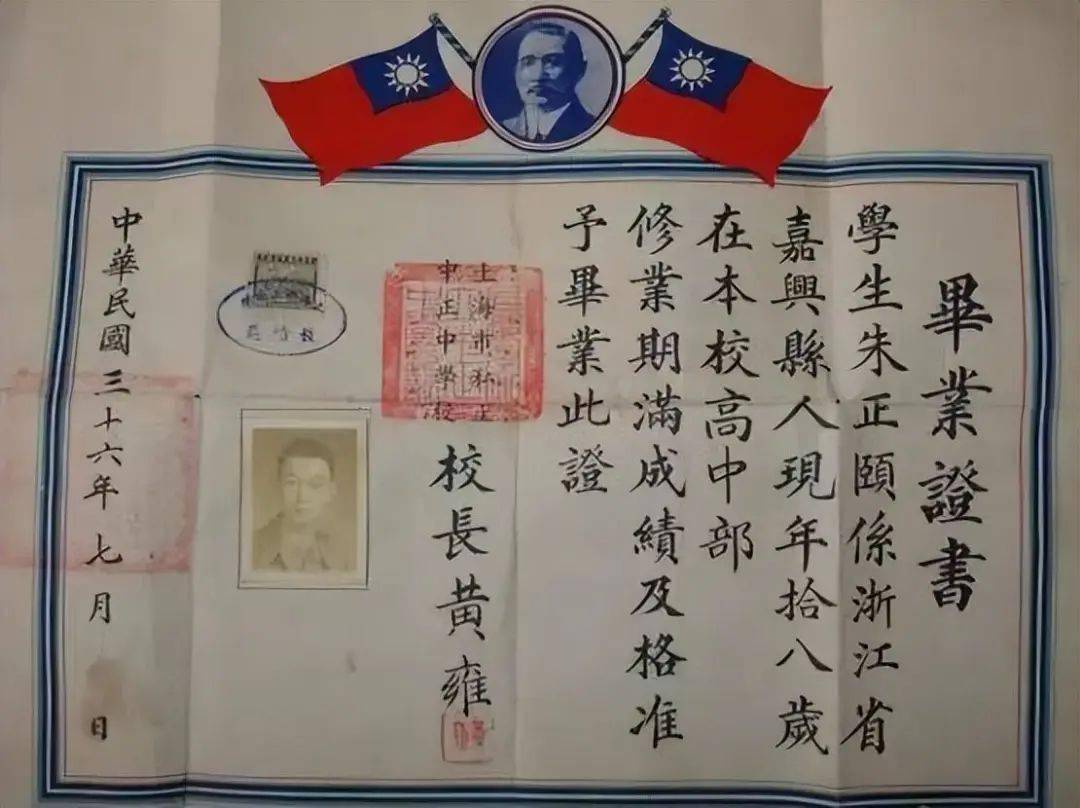 畢業證書
學生朱正頤係浙江省
嘉興縣人現年拾八歲
在本校高中部
修業期滿成績及格准
予畢業此證
上海市私立
中正中學校
校長黄雍
中華民國三十六年七月 日